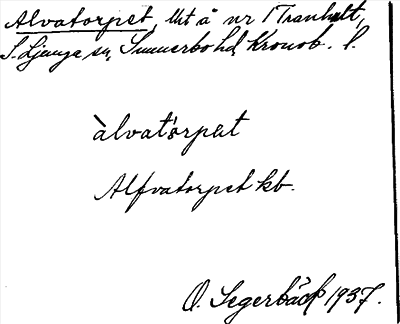 Alvatorpet, lht å nr 1 Tranhult,
S. Ljunga sn, Sunnerbo hd, Kronob. l.
àlvatòrpət
Alfvatorpet kb.
O. Segerbäck 1937.